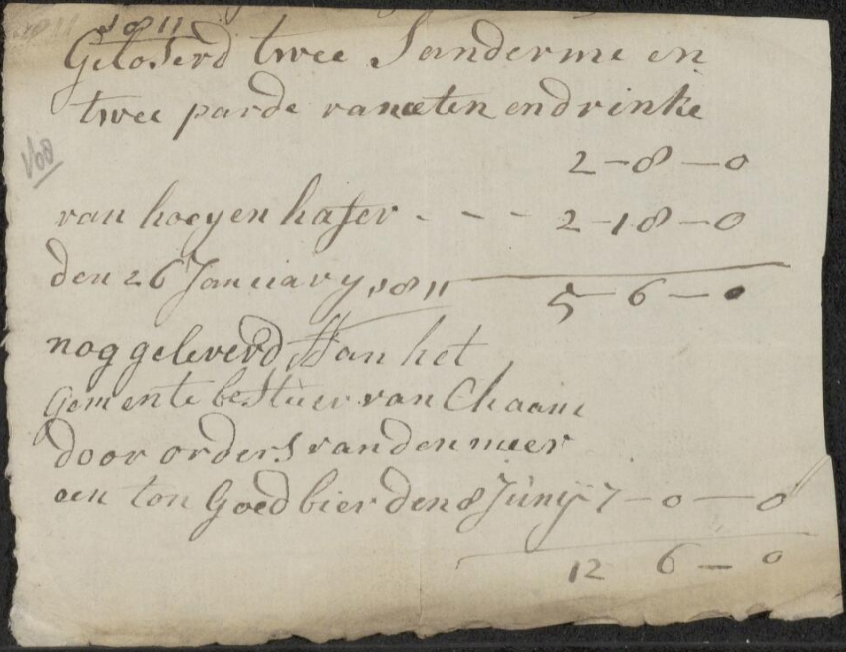 1811
Geloserd twee Sanderme en
twee parde van eeten en drinke
2-8-0
van hoeyen hafer - - - 2-18-0
den 26 January 1811 5-6-0
nog geleverd Aan het
Gemente bestuer van Chaam
door orders van den meer
een ton Goed bier den 8 Juny 7-0-0
12 6-0